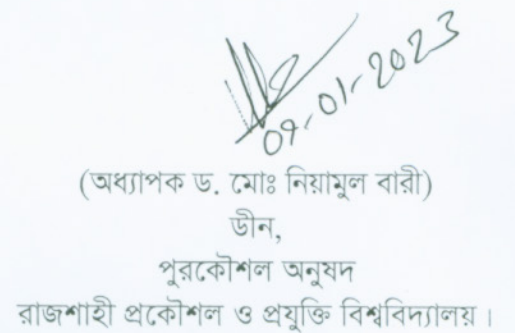 09-01-2023
(অধ্যাপক ড. মোঃ নিয়ামুল বারী)
ডীন,
পুরকৌশল অনুষদ
রাজশাহী প্রকৌশল ও প্রযুক্তি বিশ্ববিদ্যালয়।